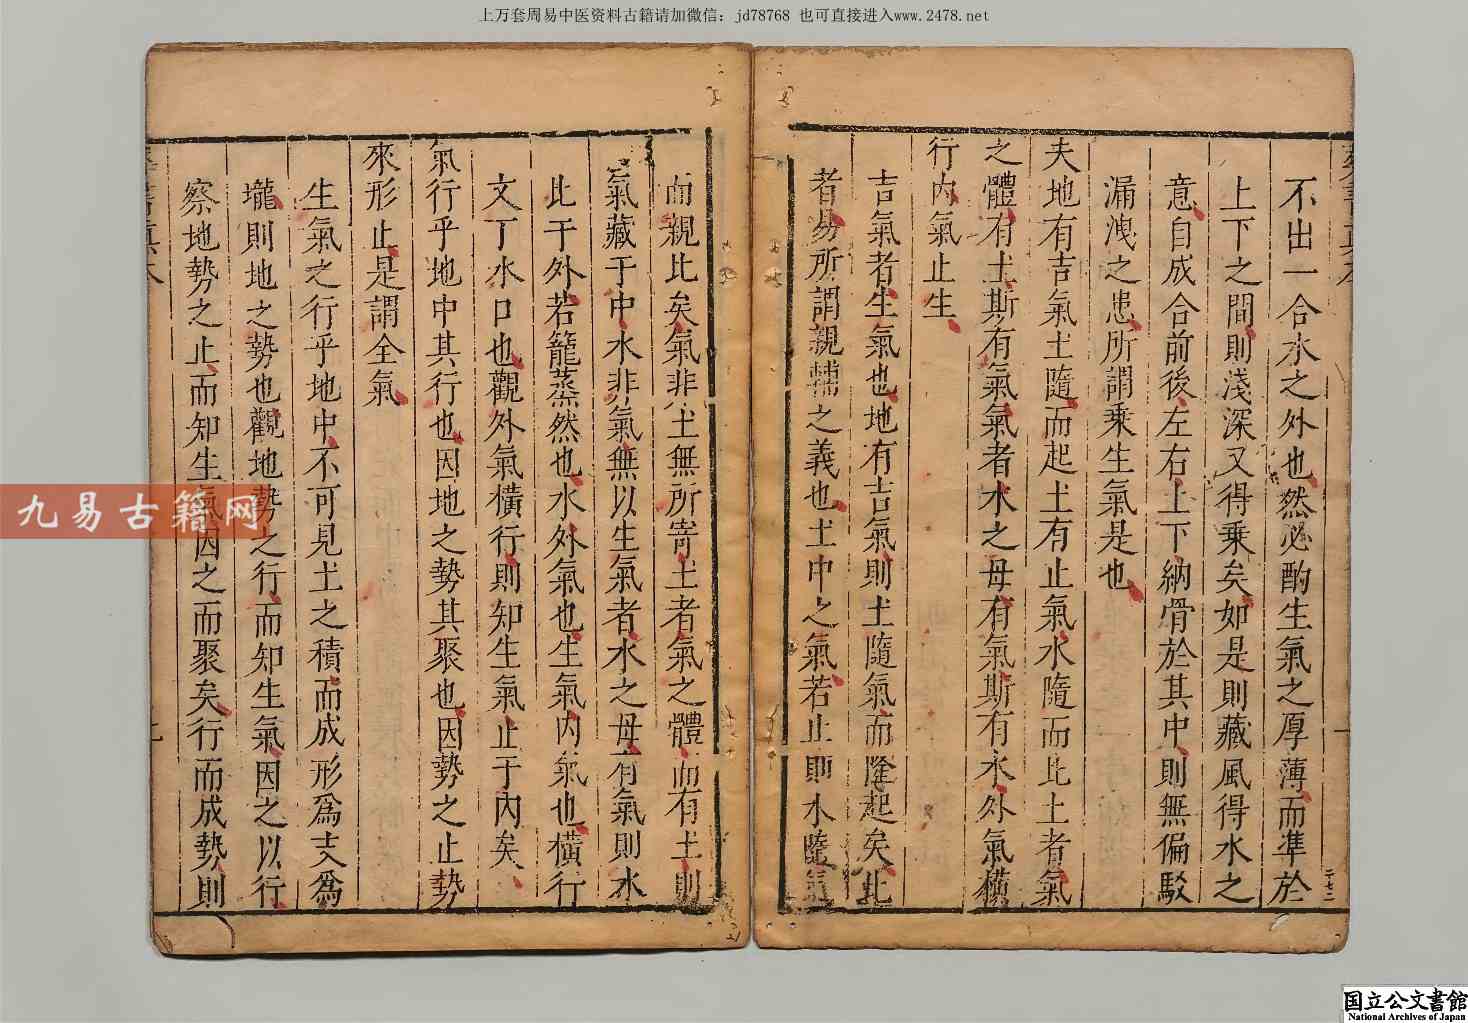 上万套周易中医资料古籍请加微信：jd78768 也可直接进入www.2478.net
不出一合水之外也然必酌生氣之厚薄而準於
上下之間則淺深又得乘矣如是則藏風得水之
意自成合前後左右上下納骨於其中則無偏駁
漏洩之患所謂乘生氣是也
夫地有吉氣土隨而起土有止氣水隨而比土者氣
之體有土斯有氣氣者水之母有氣斯有水外氣橫
行内氣止生
吉氣者生氣也地有吉氣則土隨氣而隆起矣比
者易所謂親輔之義也土中之氣若止則水隨氣
而親比矣氣非土無所寄土者氣之體而有土則
氣藏于中水非氣無以生氣者水之母有氣則水
此于外若籠蒸然也水外氣也生氣内氣也橫行
文丁水口也觀外氣橫行則知生氣止于內矣
氣行乎地中其行也因地之勢其聚也因勢之止勢
來形止是謂全氣
生氣之行乎地中不可見土之積而成形為支為
壠則地之勢也觀地勢之行而知生氣因之以行
察地勢之止而知生氣因之而聚矣行而成勢則
九易古籍网
国立公文書館
National Archives of Japan